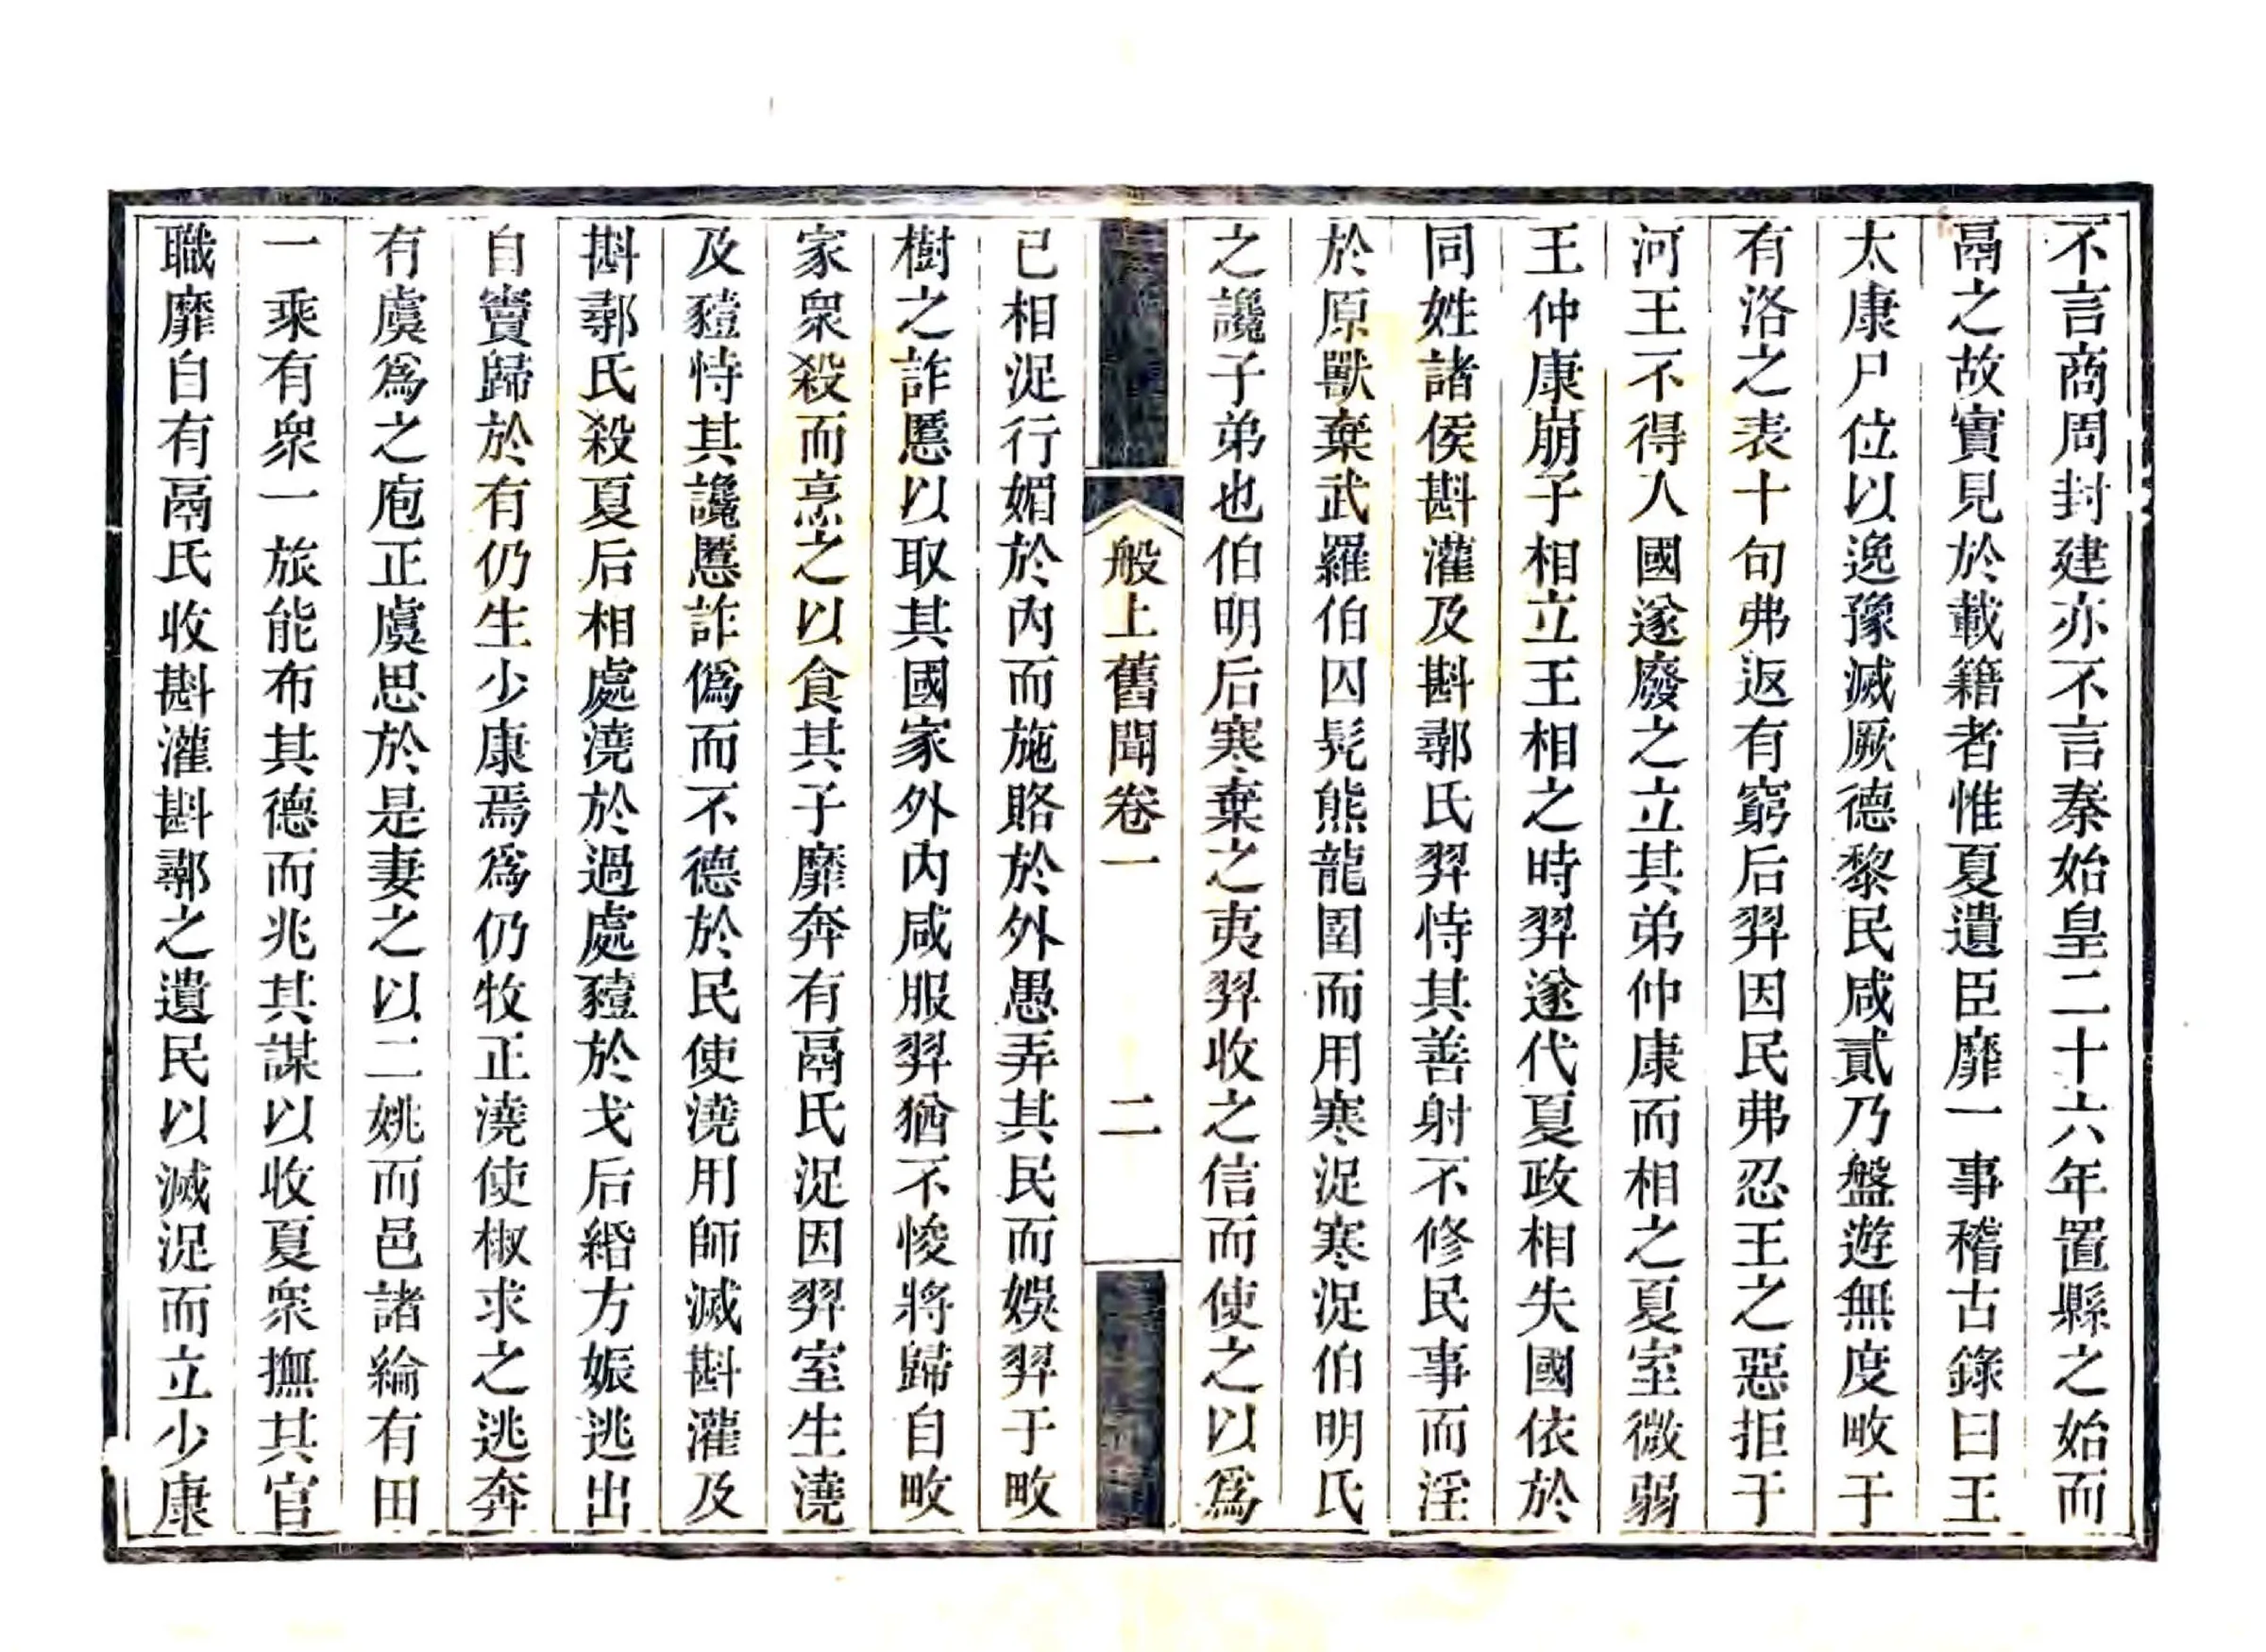 不言商周封建亦不言秦始皇二十六年置縣之始而
鬲之故實見於載籍者惟夏遺臣靡一事稽古錄曰王
太康尸位以逸豫滅厥德黎民咸貳乃盤遊無度畋于
有洛之表十旬弗返有窮后羿因民弗忍王之惡拒于
河王不得人國遂廢之立其弟仲康而相之夏室微弱
王仲康崩子相立王相之時羿遂代夏政相失國依於
同姓諸侯斟灌及斟鄩氏羿恃其善射不修民事而淫
於原獸棄武羅伯囚髡熊龍圉而用寒浞寒浞伯明氏
之讒子弟也伯明后寒棄之夷羿收之信而使之以爲
般上舊聞卷一
二
己相浞行媚於內而施賂於外愚弄其民而娛羿于畋
樹之詐慝以取其國家外內咸服羿猶不悛將歸自畋
家衆殺而烹之以食其子靡奔有鬲氏浞因羿室生澆
及豷恃其讒慝詐僞而不德於民使澆用師滅斟灌及
斟鄩氏殺夏后相處澆於過處豷於戈后緡方娠逃出
自竇歸於有仍生少康焉爲仍牧正澆使椒求之逃奔
有虞爲之庖正虞思於是妻之以二姚而邑諸綸有田
一乘有衆一旅能布其德而兆其謀以收夏衆撫其官
職靡自有鬲氏收斟灌斟鄩之遺民以滅浞而立少康